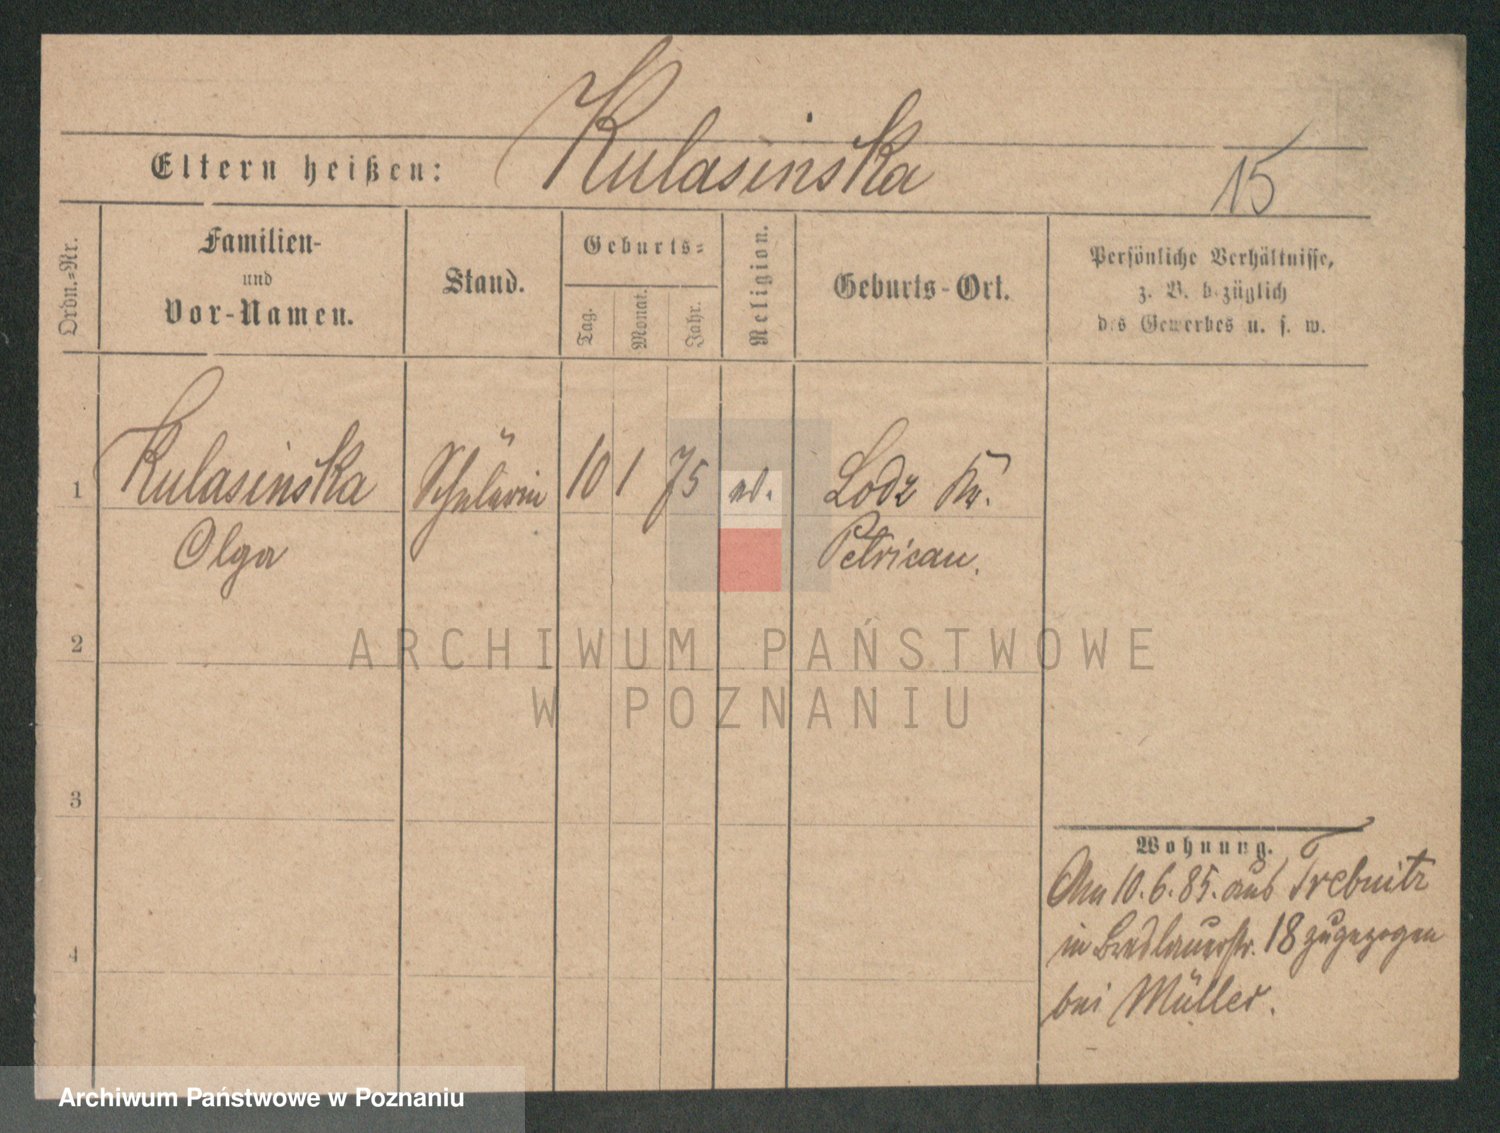 Kulasinska
Eltern heißen:
15
Ordn.-Nr.
Familien-
und
Vor-Namen.
Stand.
Geburts-
Tag.
Monat.
Jahr.
Religion.
Geburts-Ort.
Persönliche Verhältnisse,
z. B. bezüglich
des Gewerbes u. s. w.
1
Kulasinska
Olga
Schülerin
10
1
75
Lodz Kr.
Petricau.
2
3
4
ARCHIWUM PAŃSTWOWE
W POZNANIU
Wohnung.
Am 10.6.85. aus Trebnitz
in Breslauerstr. 18 zugezogen
bei Müller.
Archiwum Państwowe w Poznaniu